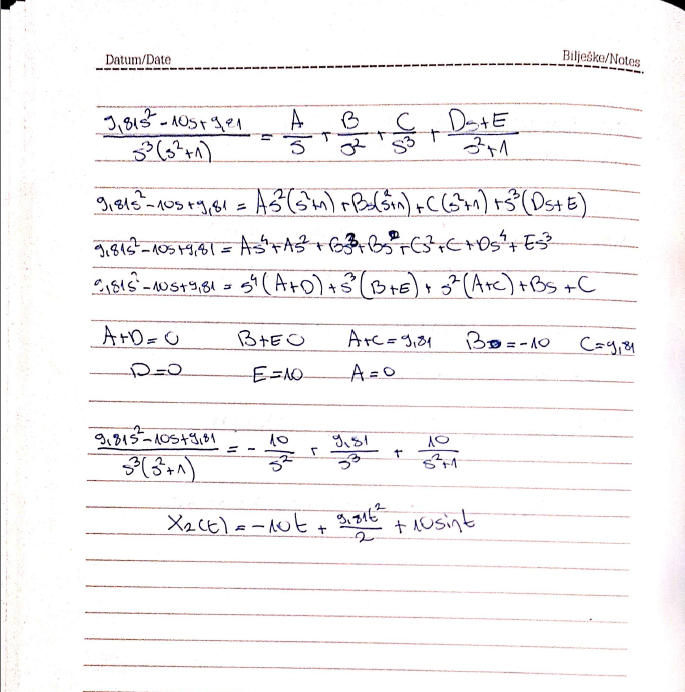 Datum/Date Bilješke/Notes
9,81s² - 10s + 9,81 / s³(s²+1) = A/s + B/s² + C/s³ + Ds+E/s²+1
9,81s² - 10s + 9,81 = As²(s²+1) + Bs(s²+1) + C(s²+1) + s³(Ds+E)
9,81s² - 10s + 9,81 = As⁴ + As² + Bs³ + Bs + Cs² + C + Ds⁴ + Es³
9,81s² - 10s + 9,81 = s⁴(A+D) + s³(B+E) + s²(A+C) + Bs + C
A+D=0 B+E0 A+C=9,81 B=-10 C=9,81
D=0 E=10 A=0
9,81s² - 10s + 9,81 / s³(s²+1) = - 10/s² + 9,81/s³ + 10/s²+1
X₂(t) = -10t + 9,81t²/2 + 10sint